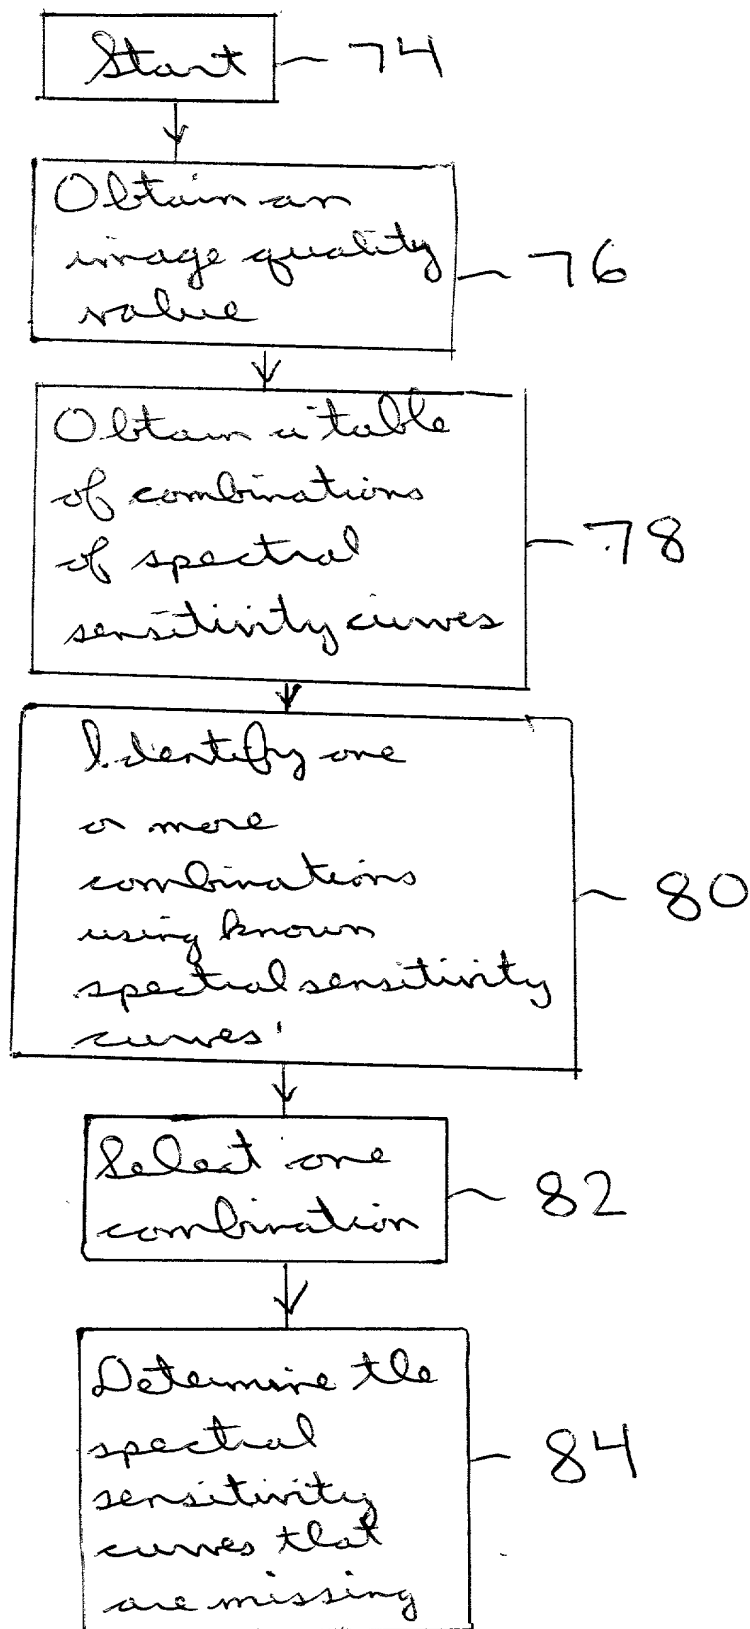 Start 74
Obtain an
image quality 76
value
Obtain a table
of combinations
of spectral 78
sensitivity curves
Identify one
or more
combinations 80
using known
spectral sensitivity
curves
Select one 82
combination
Determine the
spectral 84
sensitivity
curves that
are missing